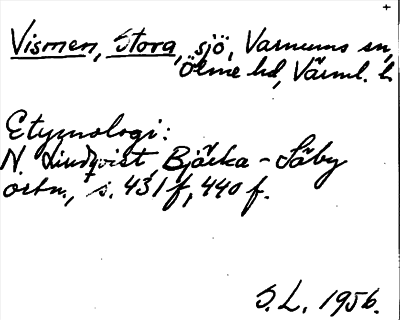 +
Vismen, Stora, sjö, Varnums sn,
Ölme hd, Värml. l.
Etymologi:
N. Lindqvist, Bjärka-Säby
ortn., s. 431 f, 440 f.
S.L. 1956.